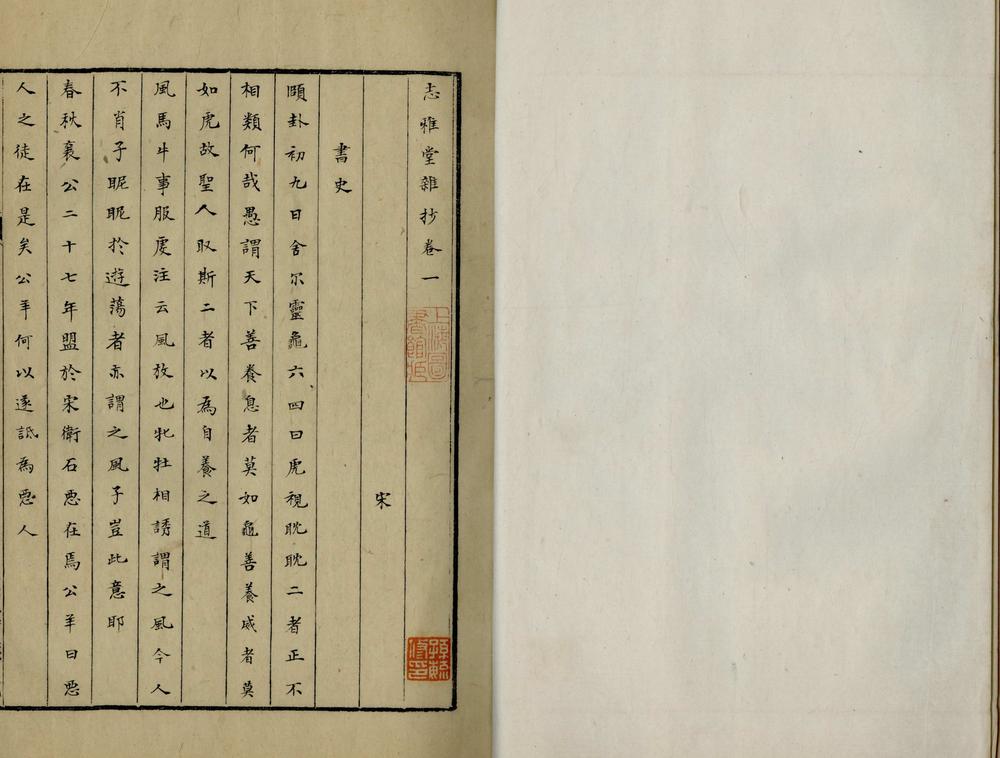 志雅堂雜抄卷一
上海圖書館藏
孫毓修印
宋
書史
頤卦初九日舍尓靈龜六四曰虎視眈眈二者正不
相類何哉愚謂天下善養息者莫如龜善養威者莫
如虎故聖人取斯二者以為自養之道
風馬牛事服虔注云風放也牝牡相誘謂之風今人
不肖子昵昵扵遊蕩者亦謂之風子豈此意耶
春秋襄公二十七年盟於宋衛石惡在焉公羊曰惡
人之徒在是矣公羊何以遂詆為惡人